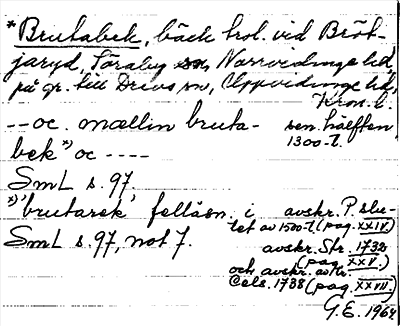 *Brutabek, bäck trol. vid Bröt-
jaryd, Töraby sn, Norrvidinge hd,
på gr. till Drevs sn, Uppvidinge hd,
Kron. l.
-- oc. mællin bruta-
bek *) oc ----
sen. hälften
1300-t.
SmL s. 97.
*) 'brutarek' felläsn. i avskr. P. slu-
tet av 1500-t. (pag. XXIV.)
SmL s. 97, not 7.
avskr. Str. 1732
(pag. XXV.)
och avskr. av
Cels. 1738 (pag. XXVII.)
G.E. 1964.